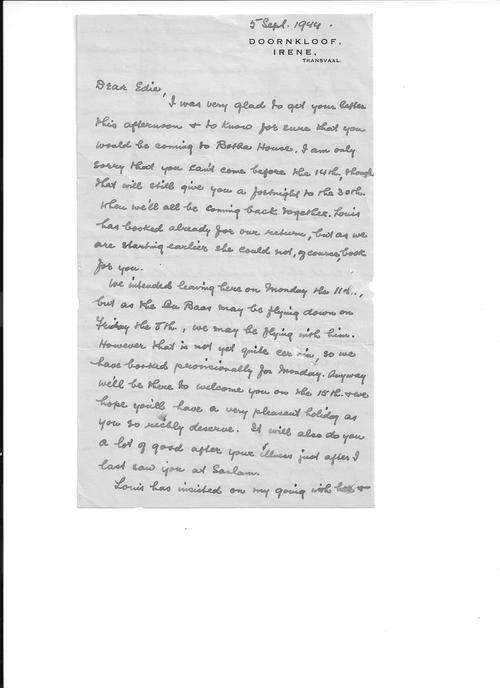 5 Sept. 1944.
DOORNKLOOF,
IRENE,
TRANSVAAL.
Dear Edie,
I was very glad to get your letter
this afternoon & to know for sure that you
would be coming to Botha House. I am only
sorry that you can't come before the 14th, though
that will still give you a fortnight to the 30th.
when we'll all be coming back together. Louis
has booked already for our return, but as we
are starting earlier she could not, of course, book
for you.
We intended leaving here on Monday the 11th.,
but as the Ou Baas may be flying down on
Friday the 8th., we may be flying with him.
However that is not yet quite cer in, so we
have booked provisionally for Monday. Anyway
we'll be there to welcome you on the 15th. & we
hope you'll have a very pleasant holiday as
you so richly deserve. It will also do you
a lot of good after your illness just after I
last saw you at Sanlam.
Louis has insisted on my going with her &